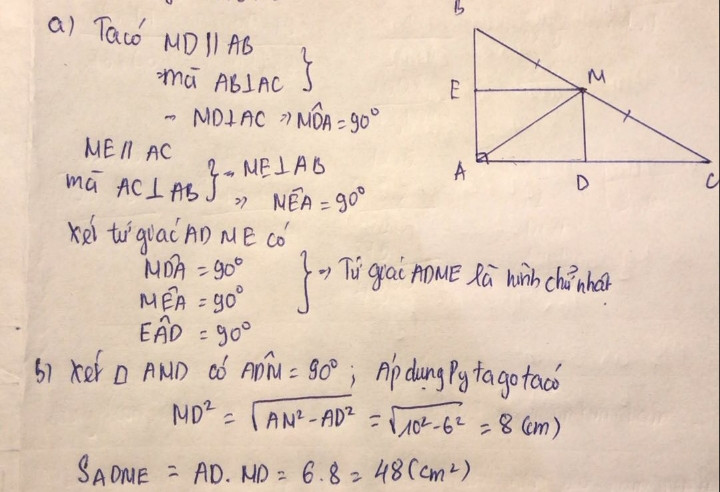 a) Ta có MD // AB
mà AB⊥AC }
→ MD⊥AC => MD̂A = 90°
ME // AC
mà AC⊥AB } → ME⊥AB
=> MÊA = 90°
Xét tứ giác ADME có
MD̂A = 90°
MÊA = 90°
EÂD = 90°
} => Tứ giác ADME là hình chữ nhật
B
E
M
A
D
C
b) Xét Δ AMD có AD̂M = 90° ; Áp dụng Pytago ta có
MD² = √AM² - AD² = √10² - 6² = 8 (cm)
SADME = AD. MD = 6.8 = 48 (cm²)